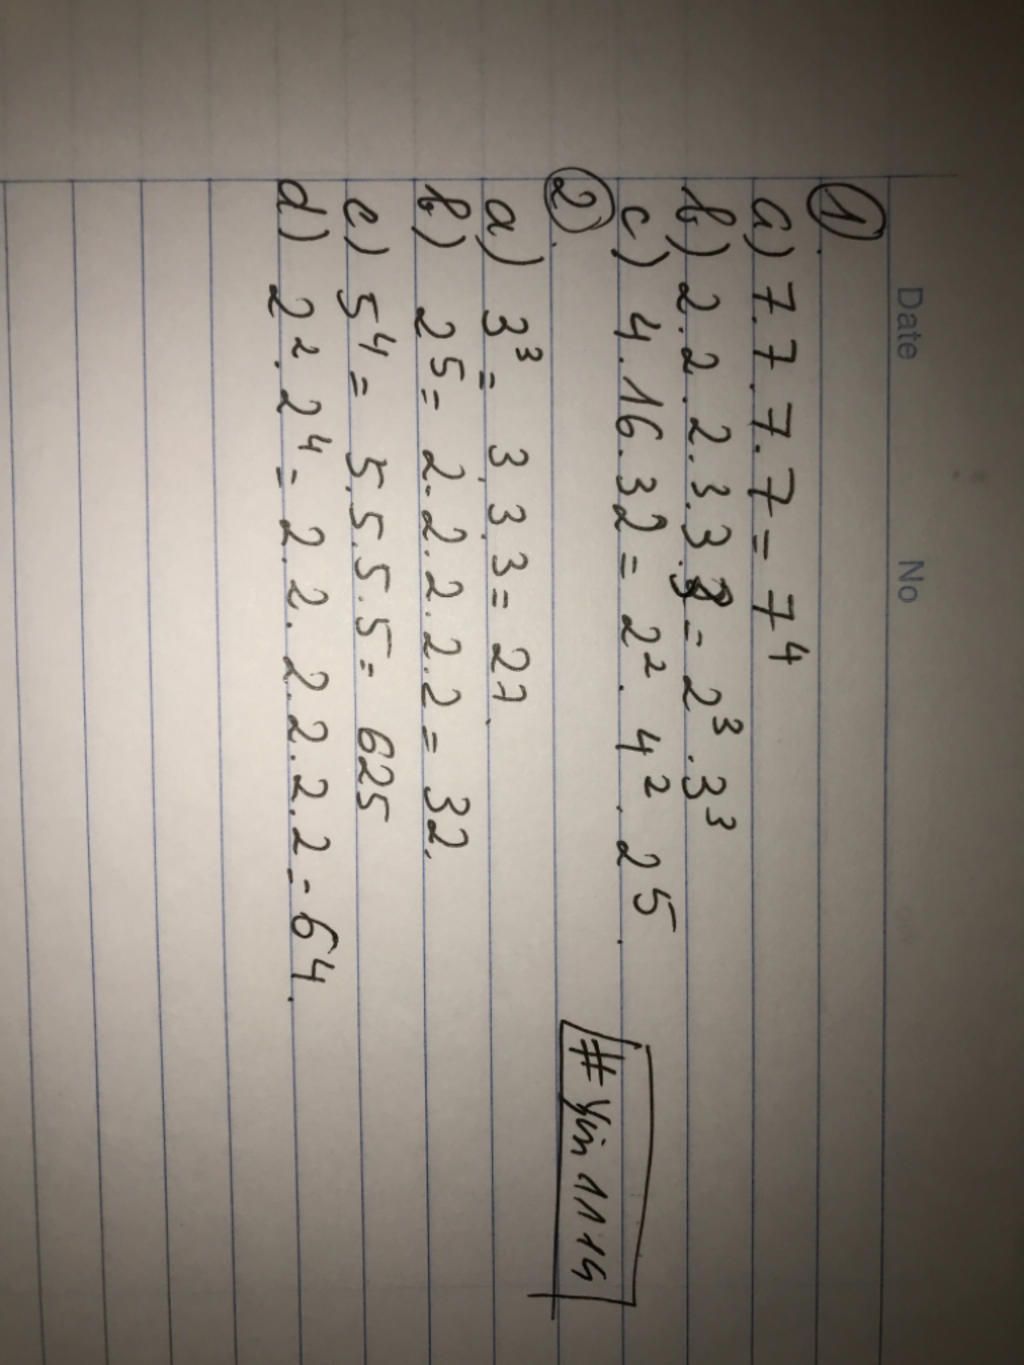 Date No
1)
a) 7.7.7.7 = 7⁴
b) 2.2.2.3.3.3 = 2³.3³
c) 4.16.32 = 2².4².2⁵.
2).
a) 3³ = 3.3.3 = 27.
b) 2⁵ = 2.2.2.2.2 = 32.
c) 5⁴ = 5.5.5.5 = 625
d) 2².2⁴ = 2.2.2.2.2.2 = 64.